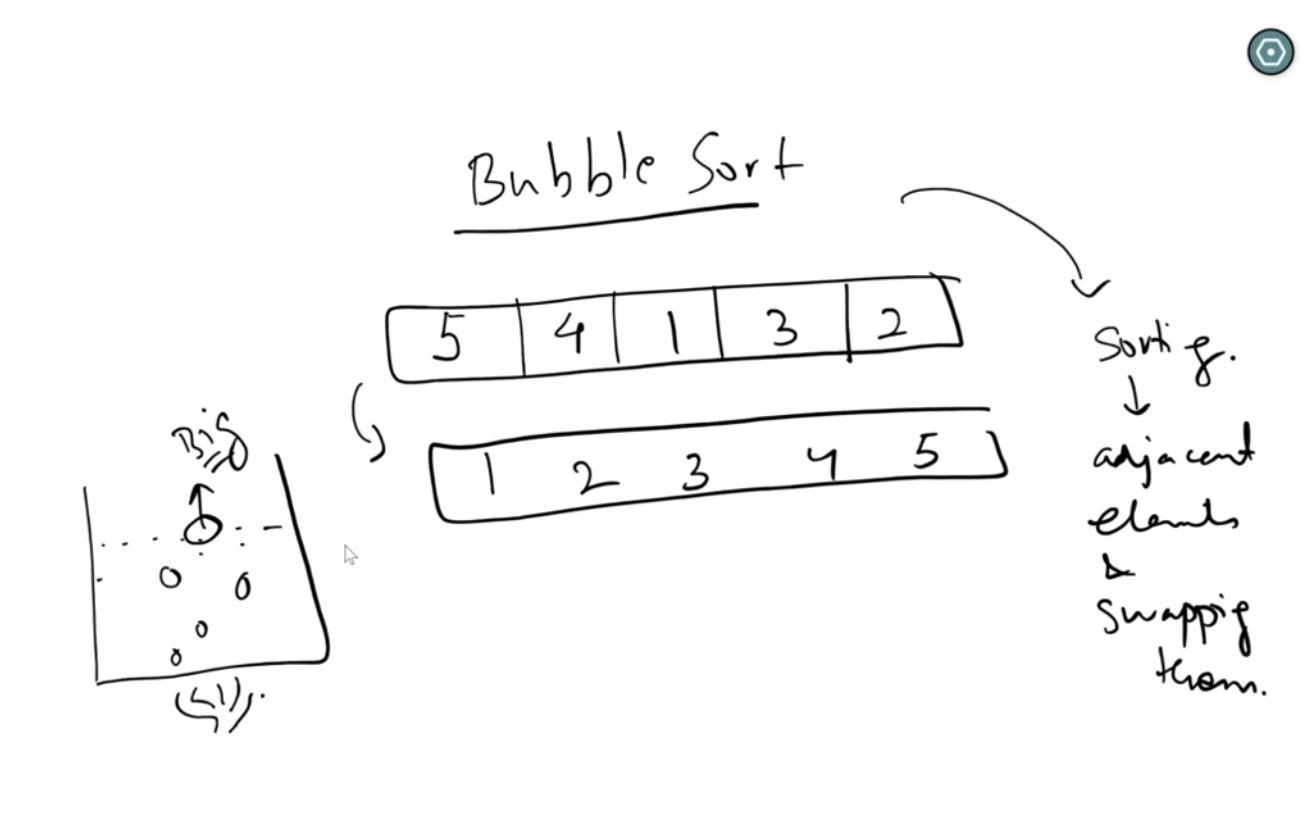 Bubble Sort
5 4 1 3 2
1 2 3 4 5
Big
Sorting.
adjacent
elements
&
swapping
them.